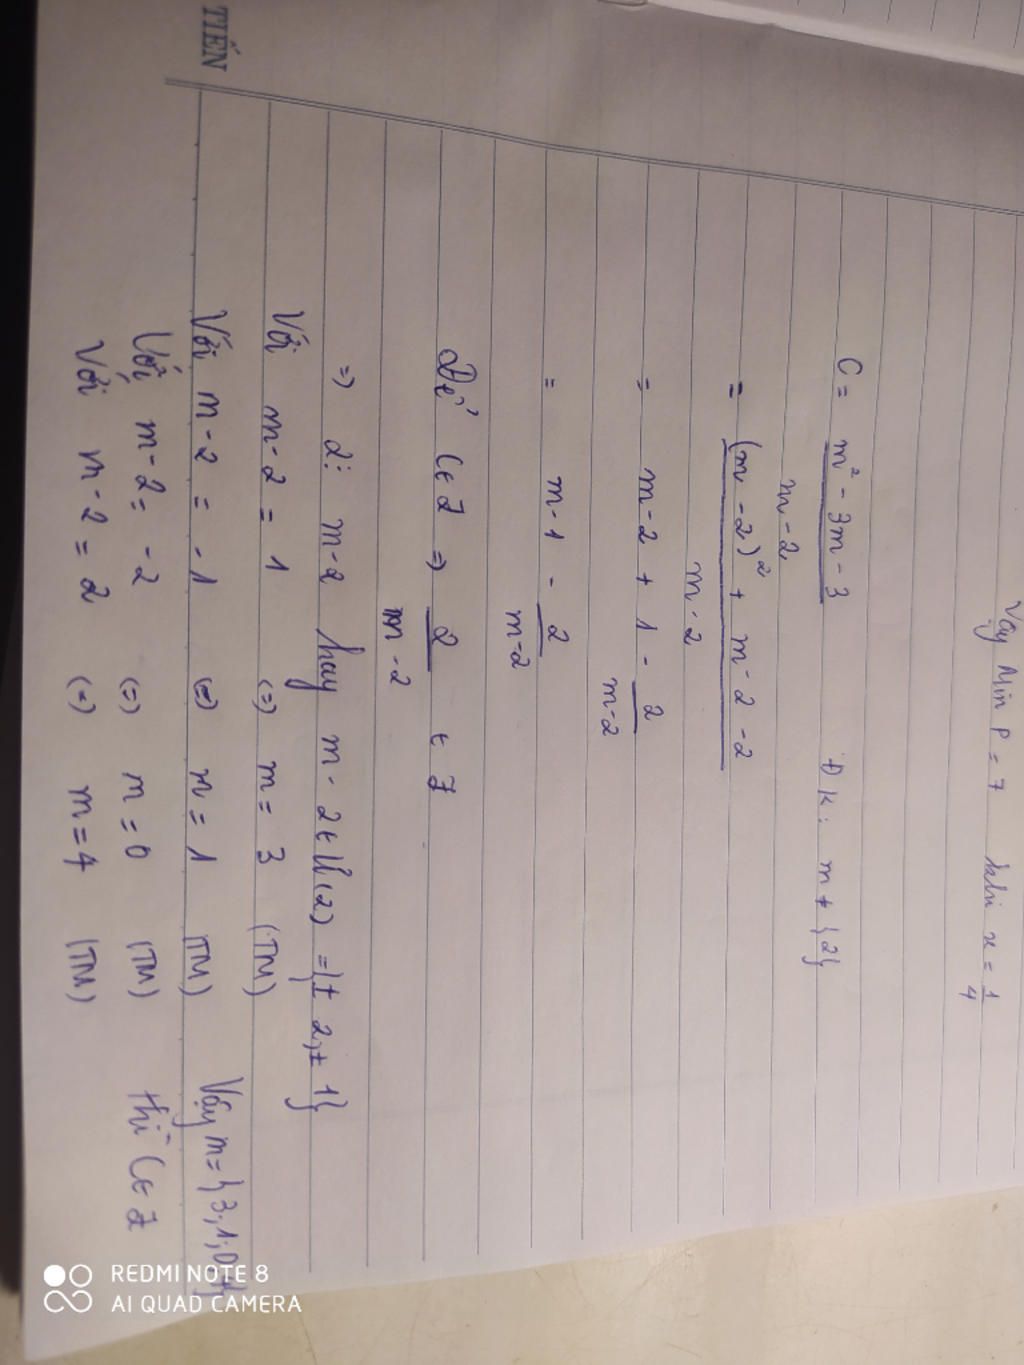 Vậy Min P = 7 khi x = 1/4
C = (m² - 3m - 3)/(m - 2) ĐK: m ≠ {2}
= ((m - 2)² + m - 2 - 2)/(m - 2)
= m - 2 + 1 - 2/(m - 2)
= m - 1 - 2/(m - 2)
Để C ∈ Z => 2/(m - 2) ∈ Z
=> 2 ⋮ m - 2 hay m - 2 ∈ Ư(2) = {± 2; ± 1}
Với m - 2 = 1 (=) m = 3 (TM)
Với m - 2 = - 1 (=) m = 1 (TM) Vậy m = {3; 1; 0; 4}
Với m - 2 = - 2 (=) m = 0 (TM) thì C ∈ Z
Với m - 2 = 2 (=) m = 4 (TM)
TIẾN
REDMI NOTE 8
AI QUAD CAMERA